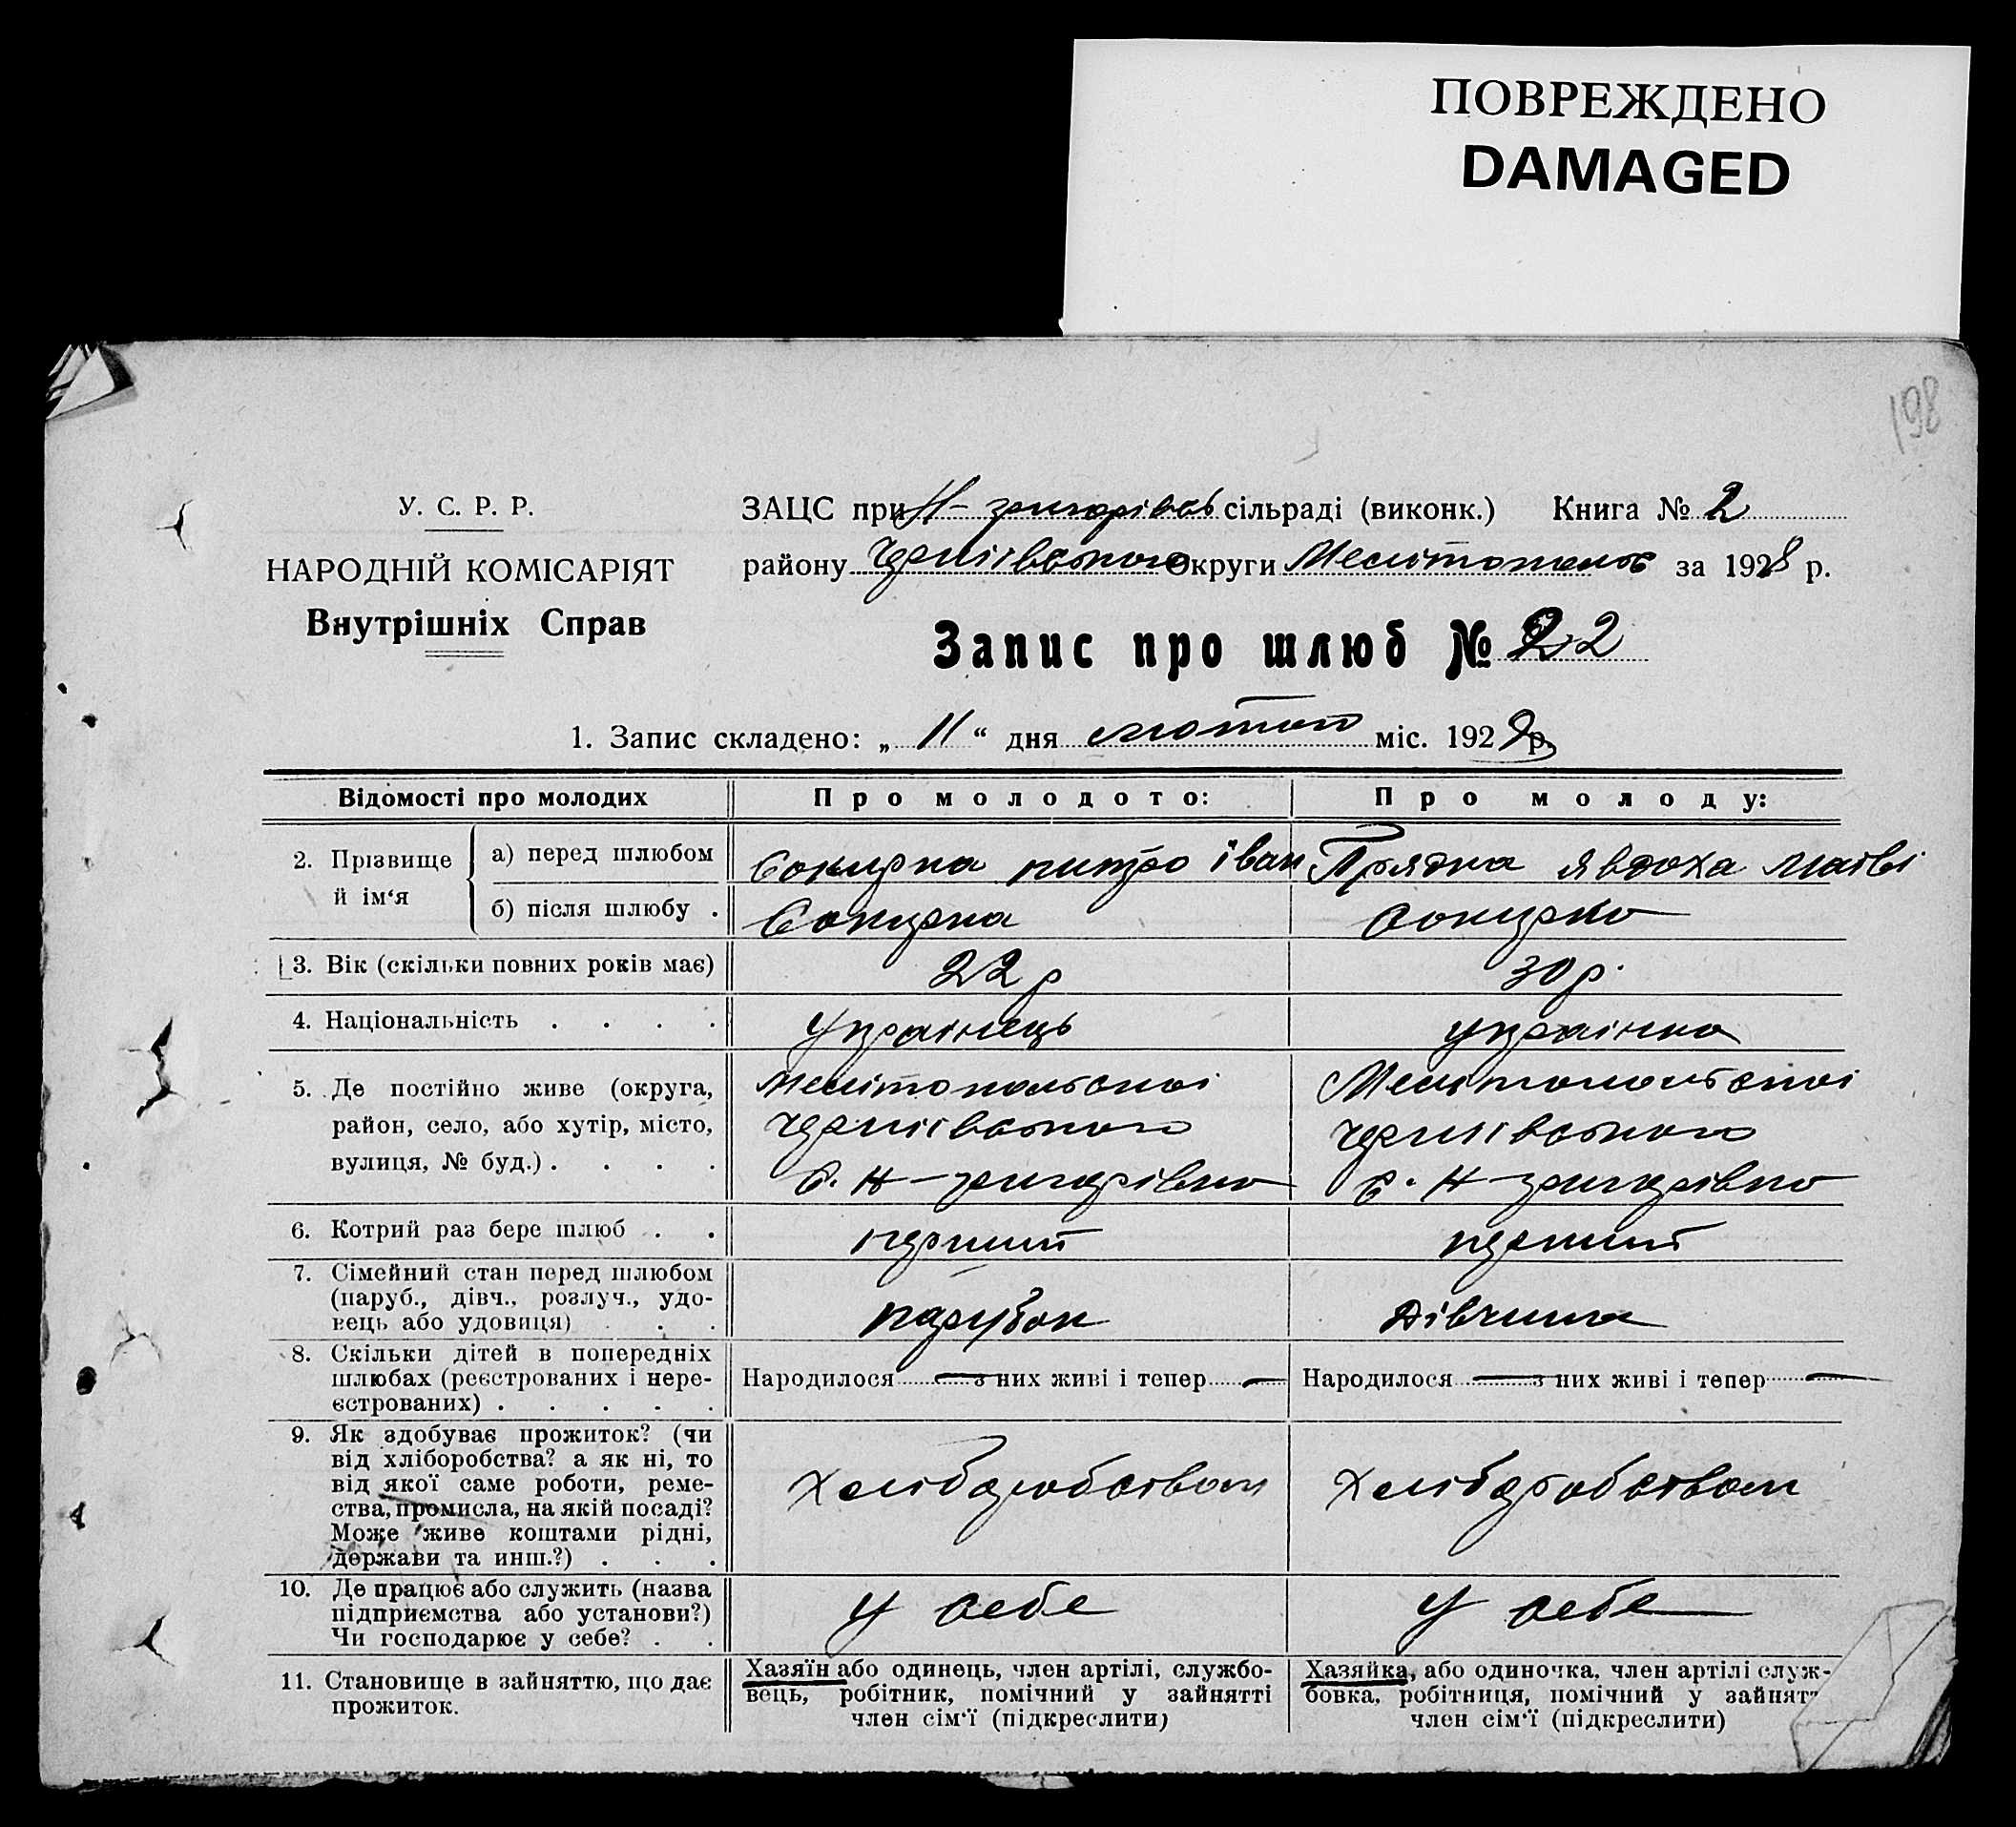 ПОВРЕЖДЕНО
DAMAGED
198
У. С. Р. Р.
НАРОДНІЙ КОМІСАРІЯТ
Внутрішніх Справ
ЗАЦС при Н-григорівсь сільраді (виконк.) Книга № 2
району Чернівського Округи Мелітопольс за 1928 р.
Запис про шлюб № 22
1. Запис складено: „ 11 “ дня лютого міс. 1928 р.
Відомості про молодих
Про молодого:
Про молоду:
2. Прізвище й ім‘я
а) перед шлюбом
Сокирка питро іван
Прядка явдоха матві
б) після шлюбу .
Сокирка
Сокирко
3. Вік (скільки повних років має)
22 р
30 р.
4. Національність . . . .
Українець
українка
5. Де постійно живе (округа,
район, село, або хутір, місто,
вулиця, № буд.) . . . .
Мелітопольскоі
Чернівського
С. Н-григорівка
Мелітопольскоі
Чернівського
С. Н-григорівко
6. Котрий раз бере шлюб . .
перший
перший
7. Сімейний стан перед шлюбом
(паруб., дівч., розлуч., удо-
вець або удовиця) . . .
парубок
дівчина
8. Скільки дітей в попередніх
шлюбах (реєстрованих і нере-
єстрованих) . . . . .
Народилося — з них живі і тепер —
Народилося — з них живі і тепер —
9. Як здобуває прожиток? (чи
від хліборобства? а як ні, то
від якої саме роботи, реме-
ства, промисла, на якій посаді?
Може живе коштами рідні,
держави та инш.?) . . .
Хліборобством
Хліборобством
10. Де працює або служить (назва
підприємства або установи?)
Чи господарює у себе? . .
у себе
у себе
11. Становище в зайняттю, що дає
прожиток.
Хазяїн або одинець, член артілі, службо-
вець, робітник, помічний у зайнятті
член сім‘ї (підкреслити)
Хазяйка, або одиночка, член артілі служ-
бовка, робітниця, помічний у зайнят
член сім‘ї (підкреслити)